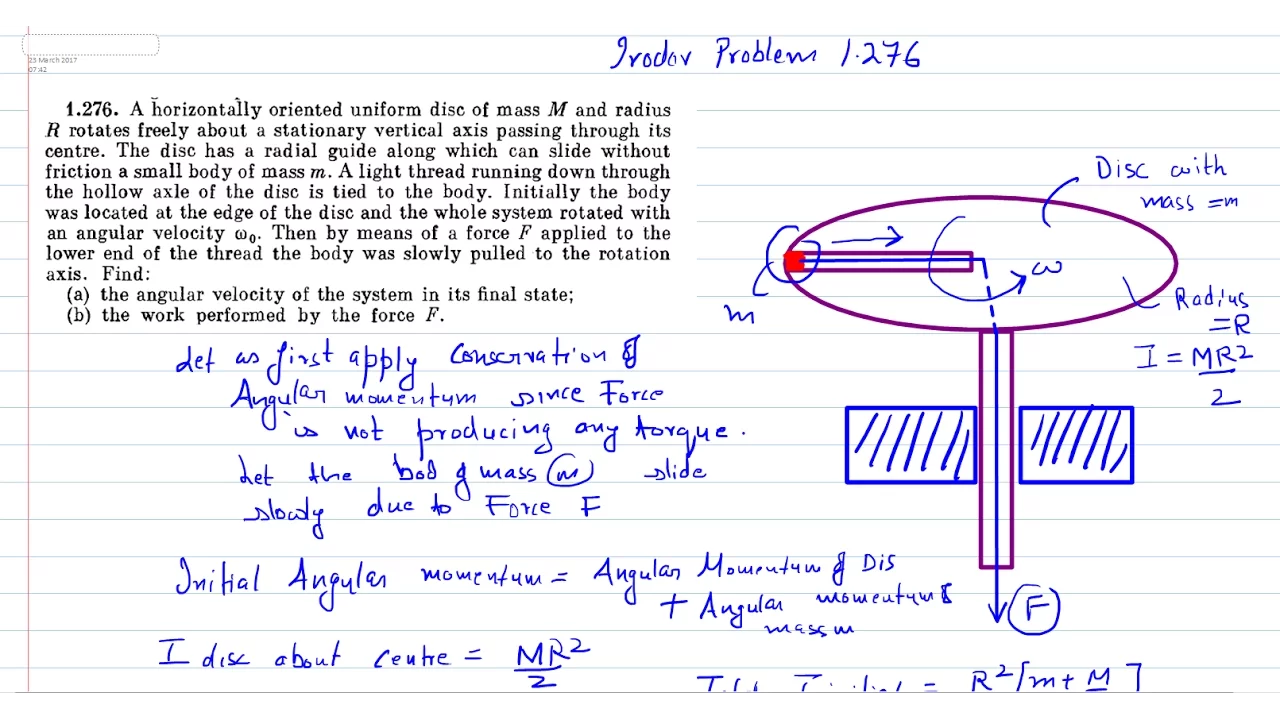 23 March 2017
07:42
Irodov Problem 1.276
1.276. A horizontally oriented uniform disc of mass M and radius
R rotates freely about a stationary vertical axis passing through its
centre. The disc has a radial guide along which can slide without
friction a small body of mass m. A light thread running down through
the hollow axle of the disc is tied to the body. Initially the body
was located at the edge of the disc and the whole system rotated with
an angular velocity ω₀. Then by means of a force F applied to the
lower end of the thread the body was slowly pulled to the rotation
axis. Find:
(a) the angular velocity of the system in its final state;
(b) the work performed by the force F.
Disc with
mass = m
ω
m
Radius
= R
I = MR²
2
Let us first apply Conservation of
Angular momentum since Force
is not producing any torque.
Let the bod of mass (m) slide
slowly due to Force F
Initial Angular momentum = Angular Momentum of Dis
+ Angular momentum of
mass m
F
I disc about centre = MR²
2
= R² [m + M ]